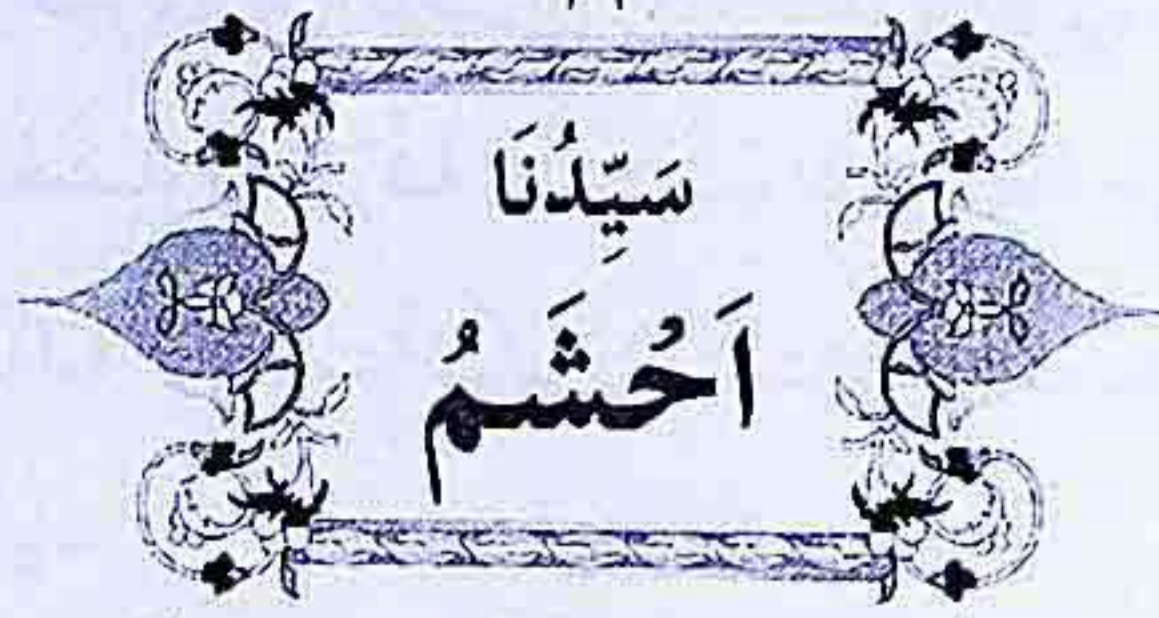 سَيِّدُنَا
اَحْشَمُ